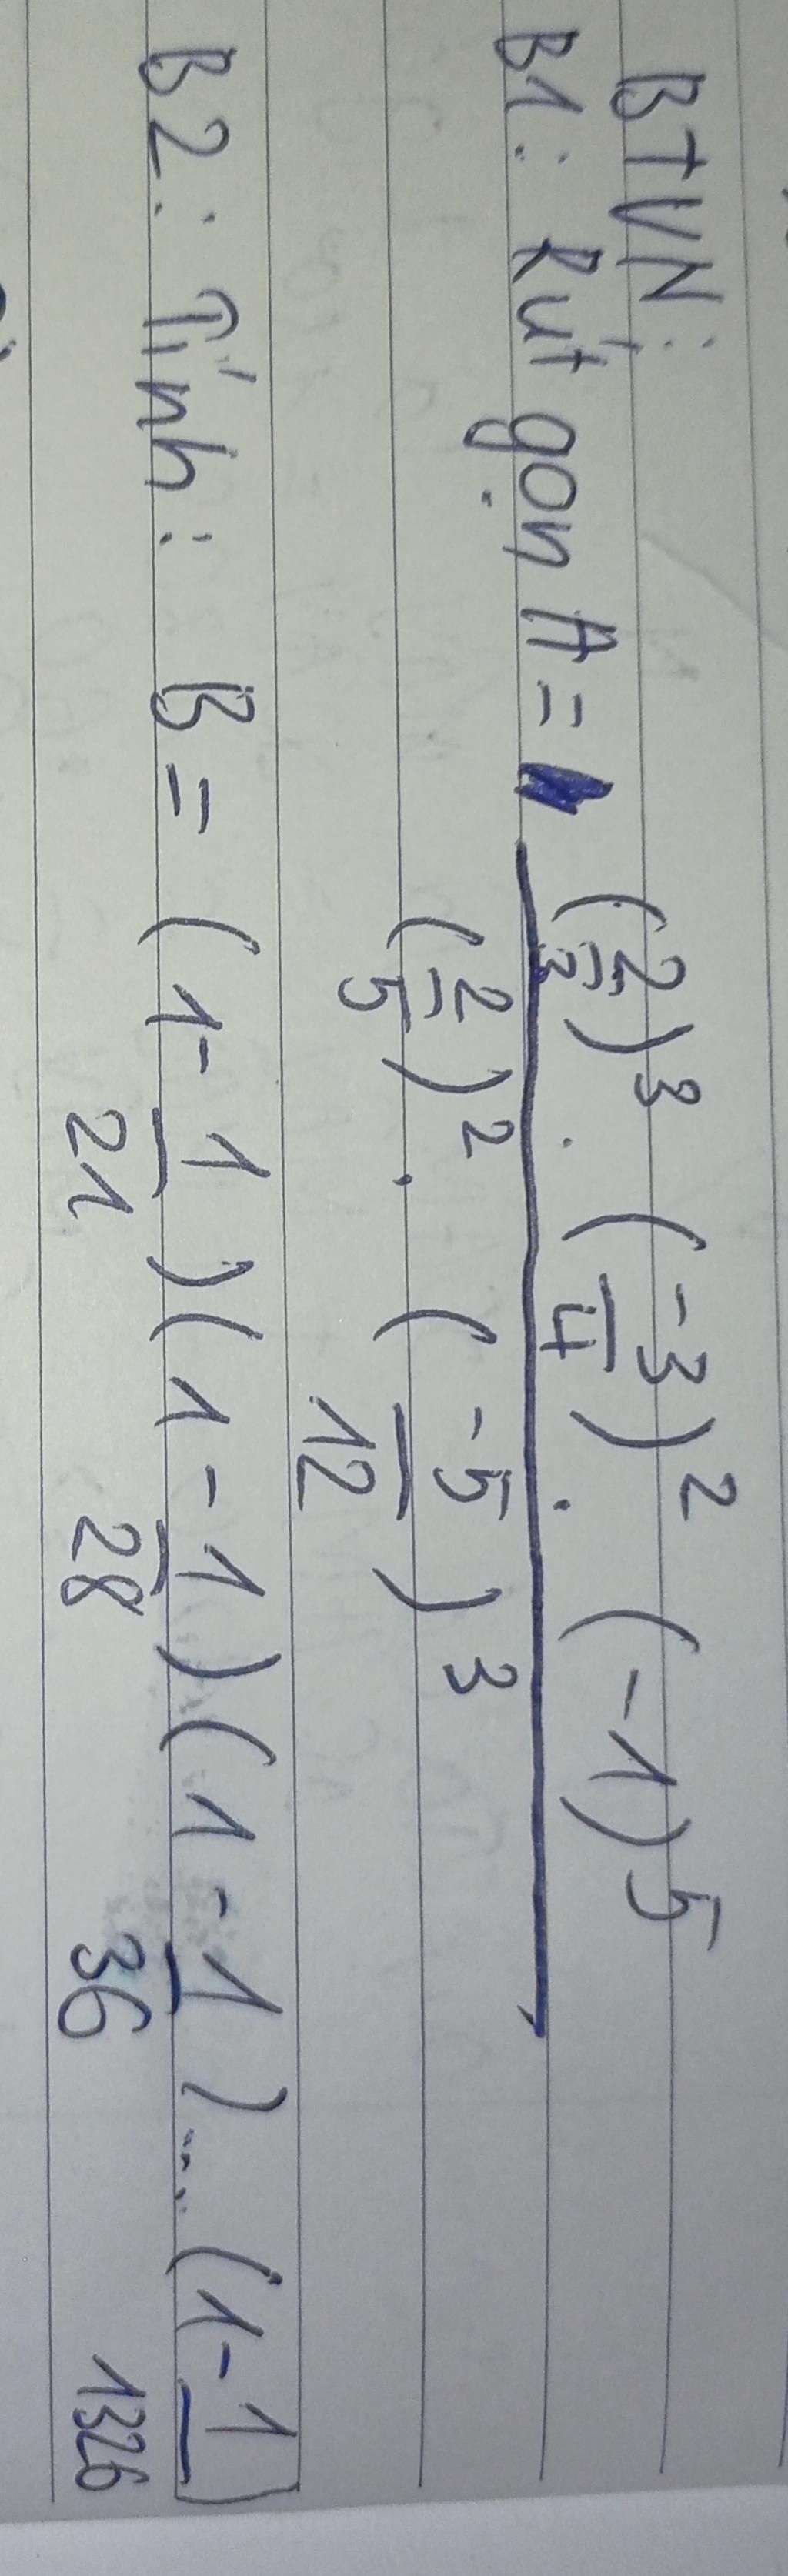 BTVN:
B1: Rút gọn A = (2/3)³ . (-3/4)² . (-1)⁵
(2/5)² . (-5/12)³
B2: Tính: B = (1-1/21)(1-1/28)(1-1/36)...(1-1/1326)